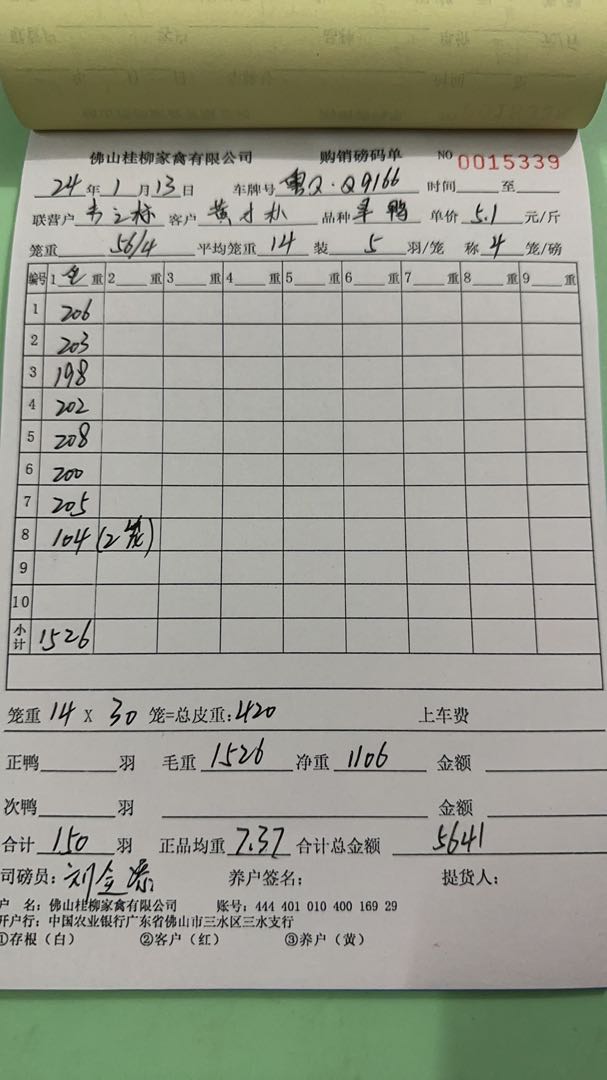 佛山桂柳家禽有限公司 购销磅码单 NO 0015339
24年1月13日 车牌号 粤Q·Q9166 时间 至
联营户 客户 黄 品种 鸭 单价 5.1 元/斤
笼重 56/4 平均笼重 14 装 5 羽/笼 称 4 笼/磅
编号 1 重 2 重 3 重 4 重 5 重 6 重 7 重 8 重 9 重
1 206
2 203
3 198
4 202
5 208
6 200
7 205
8 104 (2笼)
9
10
小计 1526
笼重 14 X 30 笼=总皮重: 420 上车费
正鸭 羽 毛重 1526 净重 1106 金额
次鸭 羽 金额
合计 150 羽 正品均重 7.37 合计总金额 5641
司磅员: 刘金添 养户签名: 提货人:
户 名: 佛山桂柳家禽有限公司 账号: 444 401 010 400 169 29
开户行: 中国农业银行广东省佛山市三水区三水支行
①存根（白） ②客户（红） ③养户（黄）